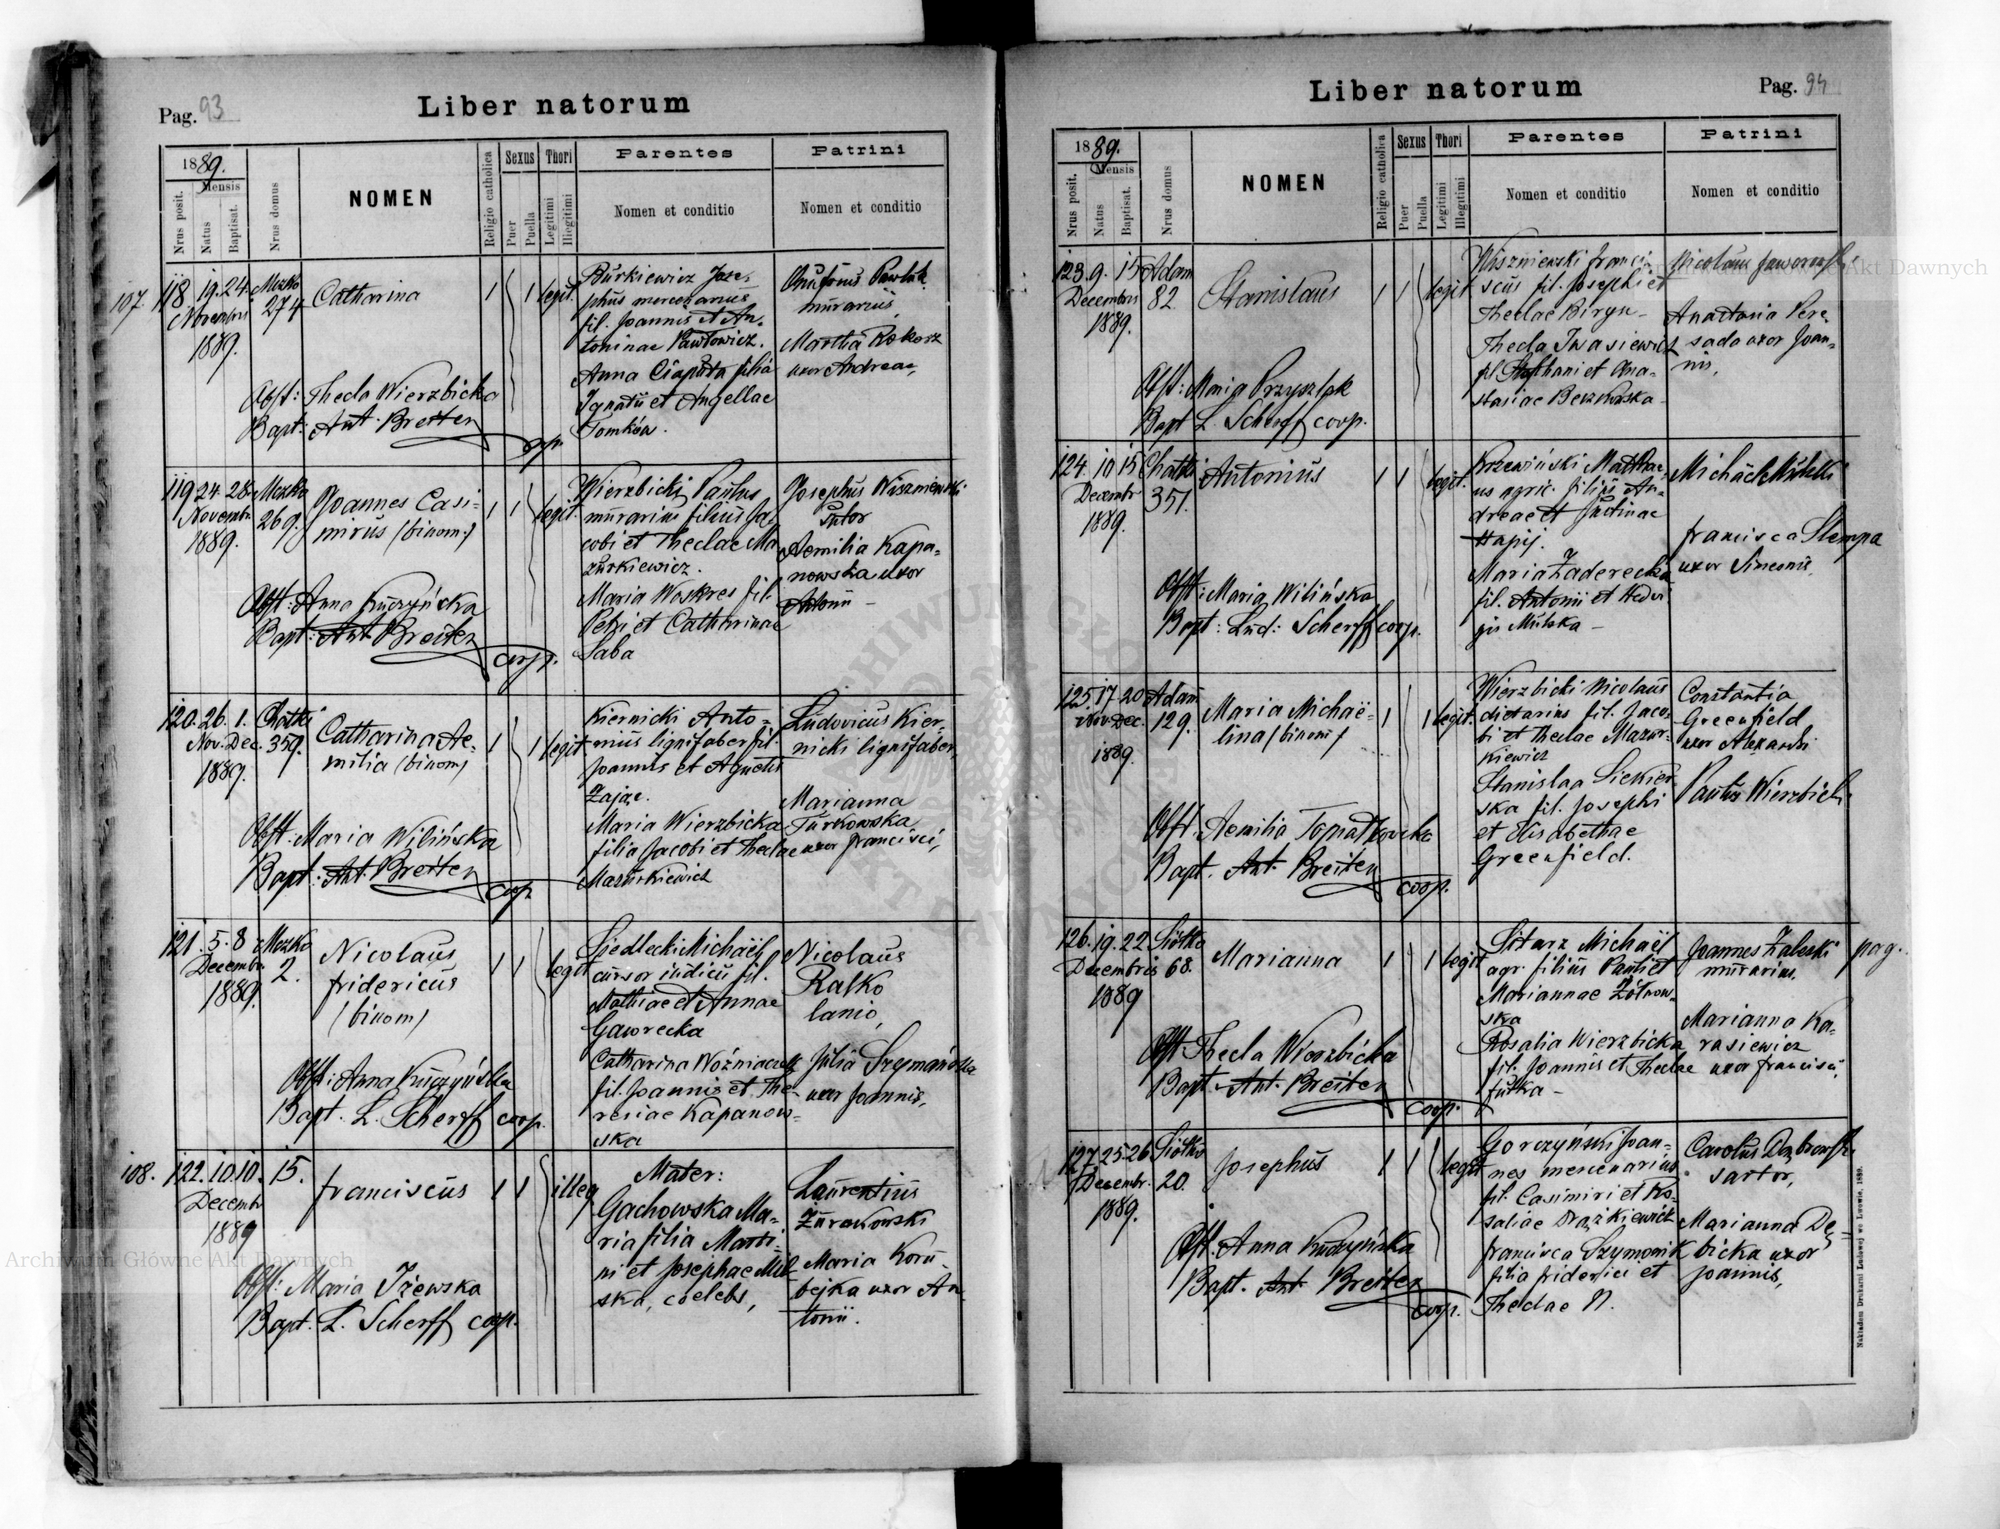 Pag. 93
Liber natorum
1889.
Nrus posit.
Mensis
Natus
Baptisat.
Nrus domus
NOMEN
Religio catholica
Sexus
Puer
Puella
Thori
Legitimi
Illegitimi
Parentes
Nomen et conditio
Patrini
Nomen et conditio
107.
118
19. 24
Novembris
1889.
274
Catharina
1
1
legit.
Burkiewicz Jose-
phus mercenarius
fil. Joannis et An-
toninae Pawłowicz.
Anna Ciaputa filia
Ignatii et Angellae
Tomków.
murarius
Martha Kokorz
uxor Andreae,
Obst: Thecla Wierzbicka
Bapt: Ant. Breiter
coop.
119
24. 28
Novembr
1889.
269.
Joannes Casi-
mirus (binom:)
1
1
legit.
Wierzbicki Paulus
murarius filius Ja-
cobi et Theclae Ma
zurkiewicz.
Maria Woskres fil.
Petri et Catharinae
Saba
Josephus Wiszniewski
sutor
Aemilia Kapa-
nowska uxor
Antonii –
Obst: Anna Kuczyńska
Bapt: Ant. Breiter
coop.
120.
26. 1.
Nov. Dec.
1889.
Chatki
359.
Catharina Ae-
milia (binom)
1
1
legit
Kiernicki Anto-
nius lignifaber fil.
Joannis et Agnetis
Zając.
Maria Wierzbicka
filia Jacobi et Theclae
Mazurkiewicz
Ludovicus Kier-
nicki lignifaber,
Marianna
Turkowska
uxor Francisci,
Obst. Maria Wilińska
Bapt: Ant. Breiter
coop.
121.
5. 8
Decembr.
1889.
2.
Nicolaus
Fridericus
(binom)
1
1
legit
Siedlecki Michaël
cursor iudicii fil.
Mathiae et Annae
Gawrecka
Catharina Woźniaczek
fil. Joannis et The-
resiae Kapanow-
ska
Nicolaus
Rałko
lanio,
Julia Szymańska
uxor Joannis,
Obst: Anna Kuczyńska
Bapt. L. Scherff coop.
108.
122.
10. 10.
Decembr
1889
15.
Franciscus
1
1
illeg
Mater:
Gachowska Ma-
ria filia Marti-
ni et Josephae Mil-
ska, coelebs,
Laurentius
Żurakowski
Maria Korn-
bejka uxor An-
tonii.
Obst: Maria Iżewska
Bapt. L. Scherff coop.
Pag. 94
Liber natorum
1889.
Nrus posit.
Mensis
Natus
Baptisat.
Nrus domus
NOMEN
Religio catholica
Sexus
Puer
Puella
Thori
Legitimi
Illegitimi
Parentes
Nomen et conditio
Patrini
Nomen et conditio
123.
9. 15
Decembris
1889.
Adam
82.
Stanislaus
1
1
legit
Wiszniewski Franci-
scus fil. Josephi et
Theclae Biryn –
Thecla Iwasiewicz
fil. Stephani et Ana-
stasiae
Nicolaus Jaworski
Anastasia Pere-
sada uxor Joan-
nis,
Obst: Maria Przyszlak
Bapt L. Scherff coop.
124.
10 15
Decembr
1889.
Chatki
351.
Antonius
1
1
legit.
Krzewiński Matthae-
us agric. filius An-
dreae et Justinae
Hapij.
Maria Zaderecka
fil. Antonii et Hedvi-
gis Milska –
Michaël Milski
Francisca Stempa
uxor Simeonis,
Obst: Maria Wilińska
Bapt: Lud: Scherff coop.
125.
17. 20
Nov. Dec.
1889.
Adam
129.
Maria Michaë-
lina (binom)
1
1
legit.
Wierzbicki Nicolaus
dietarius fil. Jaco-
bi et Theclae Mazur-
kiewicz
Stanislaa Siekier
ska fil. Josephi
et Elisabethae
Greenfield.
Constantia
Greenfield
uxor Alexandri
Paulus Wierzbicki
Obst. Aemilia
Bapt. Ant. Breiter
coop.
126.
19. 22
Decembris
1889
Siółko
68.
Marianna
1
1
legit
Sitarz Michaël
agr. filius Pauli et
Mariannae Żółnow-
ska
Rosalia Wierzbicka
fil. Joannis et Theclae
Futka –
Joannes Zaleski
murarius.
Marianna Ka-
rasiewicz
uxor Francisci,
pag.
Obst Thecla Wierzbicka
Bapt. Ant. Breiter
coop.
127.
25. 26
Decembr.
1889.
Siółko
20.
Josephus
1
1
legit
Gorczyński Joan-
nes mercenarius
fil. Casimiri et Ro-
saliae Drążkiewicz
Francisca Szymonik
filia Friderici et
Theclae N.
Carolus Dąbrowski
sartor,
Marianna Dę-
bicka uxor
Joannis,
Obst: Anna Kuczyńska
Bapt. Ant Breiter
coop.
Nakładem Drukarni Ludowej we Lwowie, 1889.
Archiwum Główne Akt Dawnych